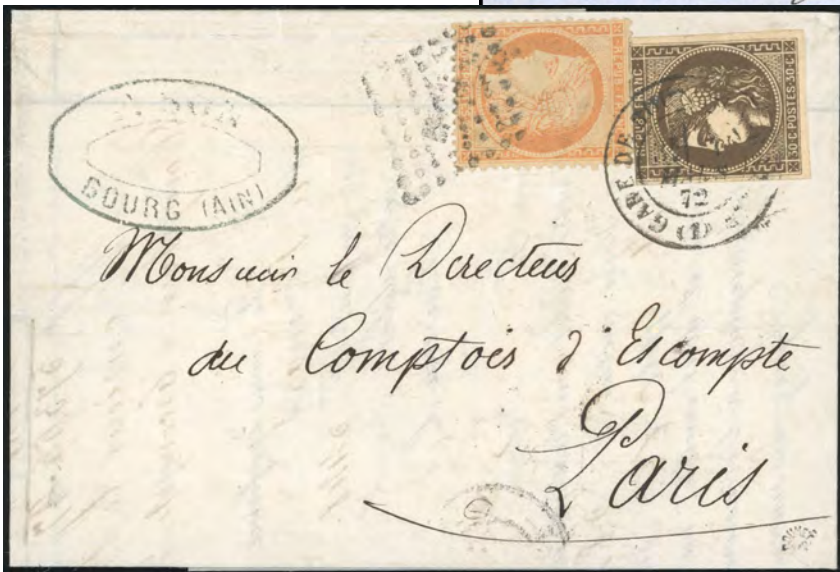 BOURG (AIN)
REPUB. FRANC.
30 C POSTES 30 C
GARE DE
72
(1)
Monsieur le Directeur
du Comptoir d'Escompte
Paris